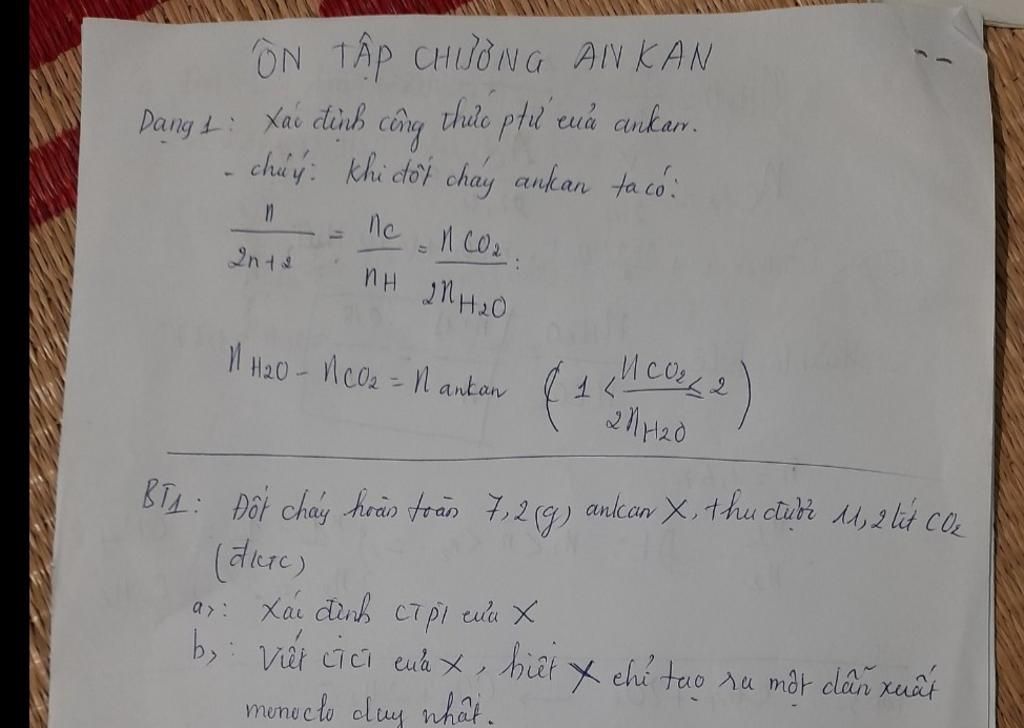 ÔN TẬP CHƯƠNG ANKAN
Dạng 1: Xác định công thức ptử của ankan.
- chú ý: Khi đốt cháy ankan ta có:
n/(2n+2) = nC/nH = nCO2/2nH2O :
nH2O - nCO2 = n ankan (1 < nCO2/2nH2O ≤ 2)
BT1: Đốt cháy hoàn toàn 7,2(g) ankan X, thu được 11,2 lít CO2
(đktc)
a,: Xác định CTPT của X
b,: Viết CTCT của X, biết X chỉ tạo ra một dẫn xuất
monoclo duy nhất.